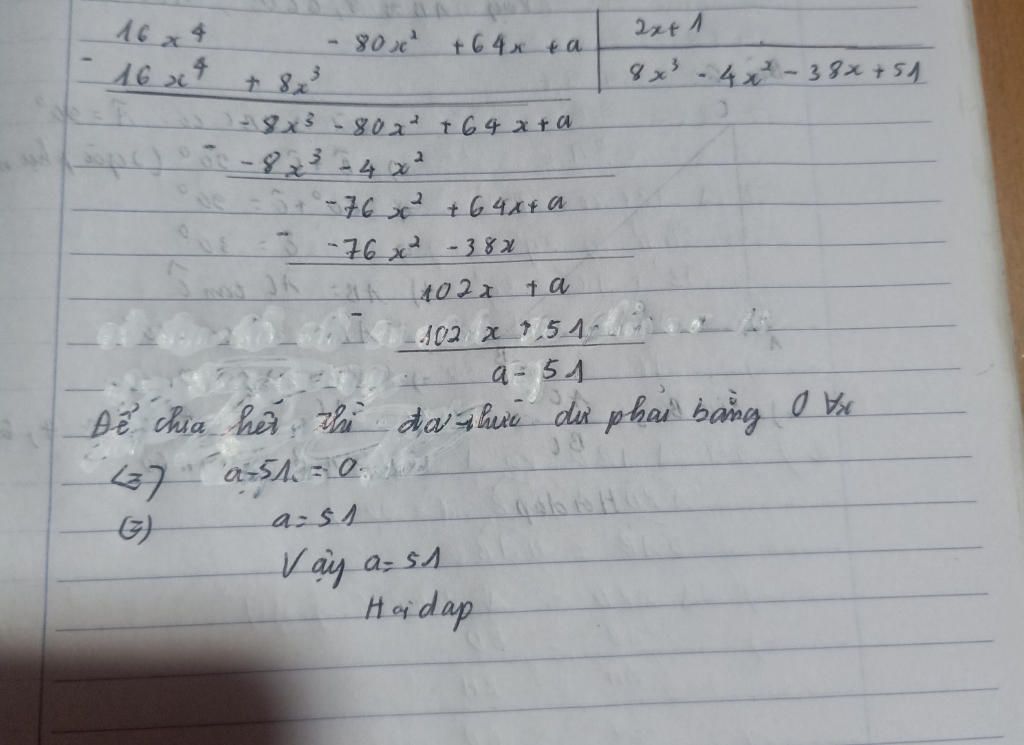 16x⁴ - 80x² + 64x + a | 2x+1
- 16x⁴ + 8x³ | 8x³ - 4x² - 38x + 51
-8x³ - 80x² + 64x + a
- -8x³ - 4x²
-76x² + 64x + a
- -76x² - 38x
102x + a
- 102x + 51
a - 51
Để chia hết thì đa thức dư phải bằng 0 ∀x
<=> a-51 = 0
<=> a = 51
Vậy a = 51
Hoidap